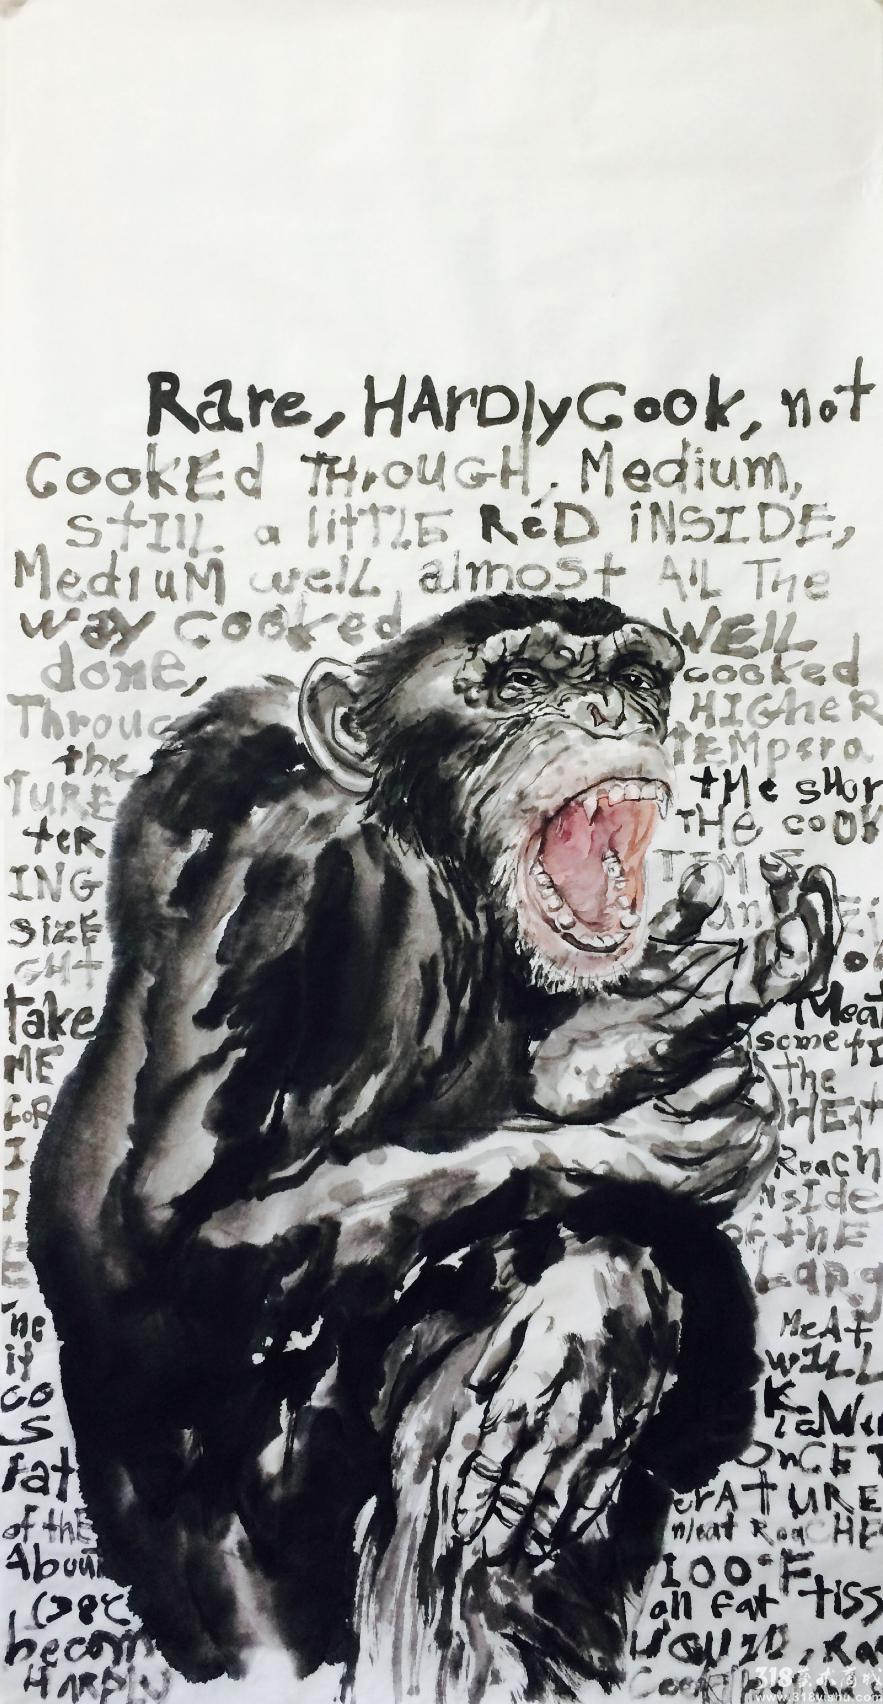 Rare, HArDly Cook, not
CooKEd THrOUGH, Medium,
StILL a littLE ReD iNSIDE,
MedIuM well almost All The
way cooked WELL
done, cooked
Throug HIGHeR
the tEMPera
TURE tHe SHOR
teR THe COOK
ING TEMPE
SizE an
GHt
take Meat
ME some tI
FOR the
I HEAt
ReacH
nside
of thE
Larg
ne MeAt
it wILL
CO K
S
Fat OnCE T
erATURE
of thE Meat ReaCHE
About 100°F
(38℃ all fat tiss
becom LIQUID, Ra
HARDly Cook
318艺术商城
www.318yishu.com